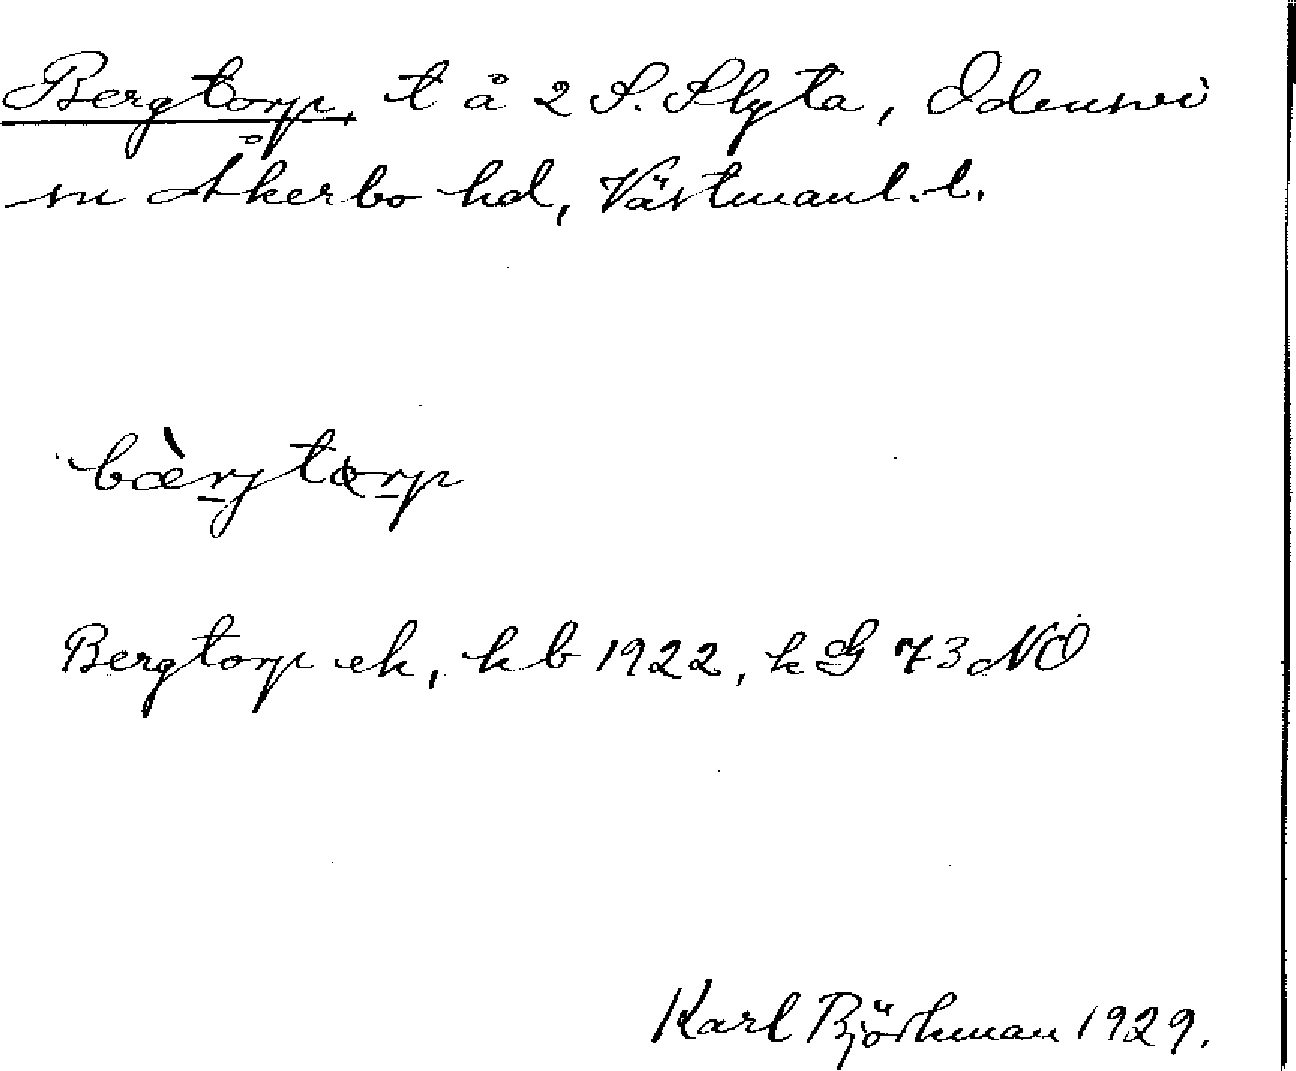 Bergtorp, t å 2 S. Slyta, Odensvi
sn Åkerbo hd, Västmanl. l.
bæ̀rjtɔrp
Bergtorp ek, kb 1922, k G 73 NO
Karl Björkman 1929.